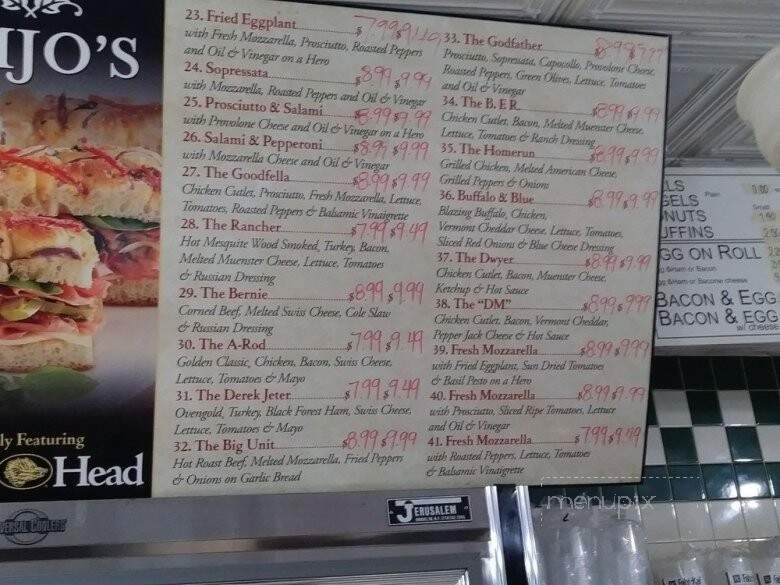 IJO'S
ly Featuring
Head
UNIVERSAL COOLERS
23. Fried Eggplant $7.99 9.49
with Fresh Mozzarella, Prosciutto, Roasted Peppers
and Oil & Vinegar on a Hero
24. Sopressata $8.99 9.99
with Mozzarella, Roasted Peppers and Oil & Vinegar
25. Prosciutto & Salami $8.99 $9.99
with Provolone Cheese and Oil & Vinegar on a Hero
26. Salami & Pepperoni $8.99 $9.99
with Mozzarella Cheese and Oil & Vinegar
27. The Goodfella $8.99 $9.99
Chicken Cutlet, Prosciutto, Fresh Mozzarella, Lettuce,
Tomatoes, Roasted Peppers & Balsamic Vinaigrette
28. The Rancher $7.99 $9.49
Hot Mesquite Wood Smoked, Turkey, Bacon,
Melted Muenster Cheese, Lettuce, Tomatoes
& Russian Dressing
29. The Bernie $8.99 $9.99
Corned Beef, Melted Swiss Cheese, Cole Slaw
& Russian Dressing
30. The A-Rod $7.99 $9.49
Golden Classic, Chicken, Bacon, Swiss Cheese,
Lettuce, Tomatoes & Mayo
31. The Derek Jeter $7.99 $9.49
Ovengold, Turkey, Black Forest Ham, Swiss Cheese,
Lettuce, Tomatoes & Mayo
32. The Big Unit $8.99 $9.99
Hot Roast Beef, Melted Mozzarella, Fried Peppers
& Onions on Garlic Bread
33. The Godfather $8.99 $9.99
Prosciutto, Sopresata, Capocollo, Provolone Cheese,
Roasted Peppers, Green Olives, Lettuce, Tomatoes
and Oil & Vinegar
34. The B.E.R. $8.99 $9.99
Chicken Cutlet, Bacon, Melted Muenster Cheese,
Lettuce, Tomatoes & Ranch Dressing
35. The Homerun $8.99 $9.99
Grilled Chicken, Melted American Cheese,
Grilled Peppers & Onions
36. Buffalo & Blue $8.99 $9.99
Blazing Buffalo, Chicken,
Vermont Cheddar Cheese, Lettuce, Tomatoes,
Sliced Red Onions & Blue Cheese Dressing
37. The Dwyer $8.99 $9.99
Chicken Cutlet, Bacon, Muenster Cheese,
Ketchup & Hot Sauce
38. The "DM" $8.99 $9.99
Chicken Cutlet, Bacon, Vermont Cheddar,
Pepper Jack Cheese & Hot Sauce
39. Fresh Mozzarella $8.99 $9.99
with Fried Eggplant, Sun Dried Tomatoes
& Basil Pesto on a Hero
40. Fresh Mozzarella $8.99 $9.99
with Prosciutto, Sliced Ripe Tomatoes, Lettuce
and Oil & Vinegar
41. Fresh Mozzarella $7.99 $9.49
with Roasted Peppers, Lettuce, Tomatoes
& Balsamic Vinaigrette
JERUSALEM
LS Plain
GELS
NUTS Small
UFFINS
GG ON ROLL
BACON & EGG
BACON & EGG
w/ cheese
menupix